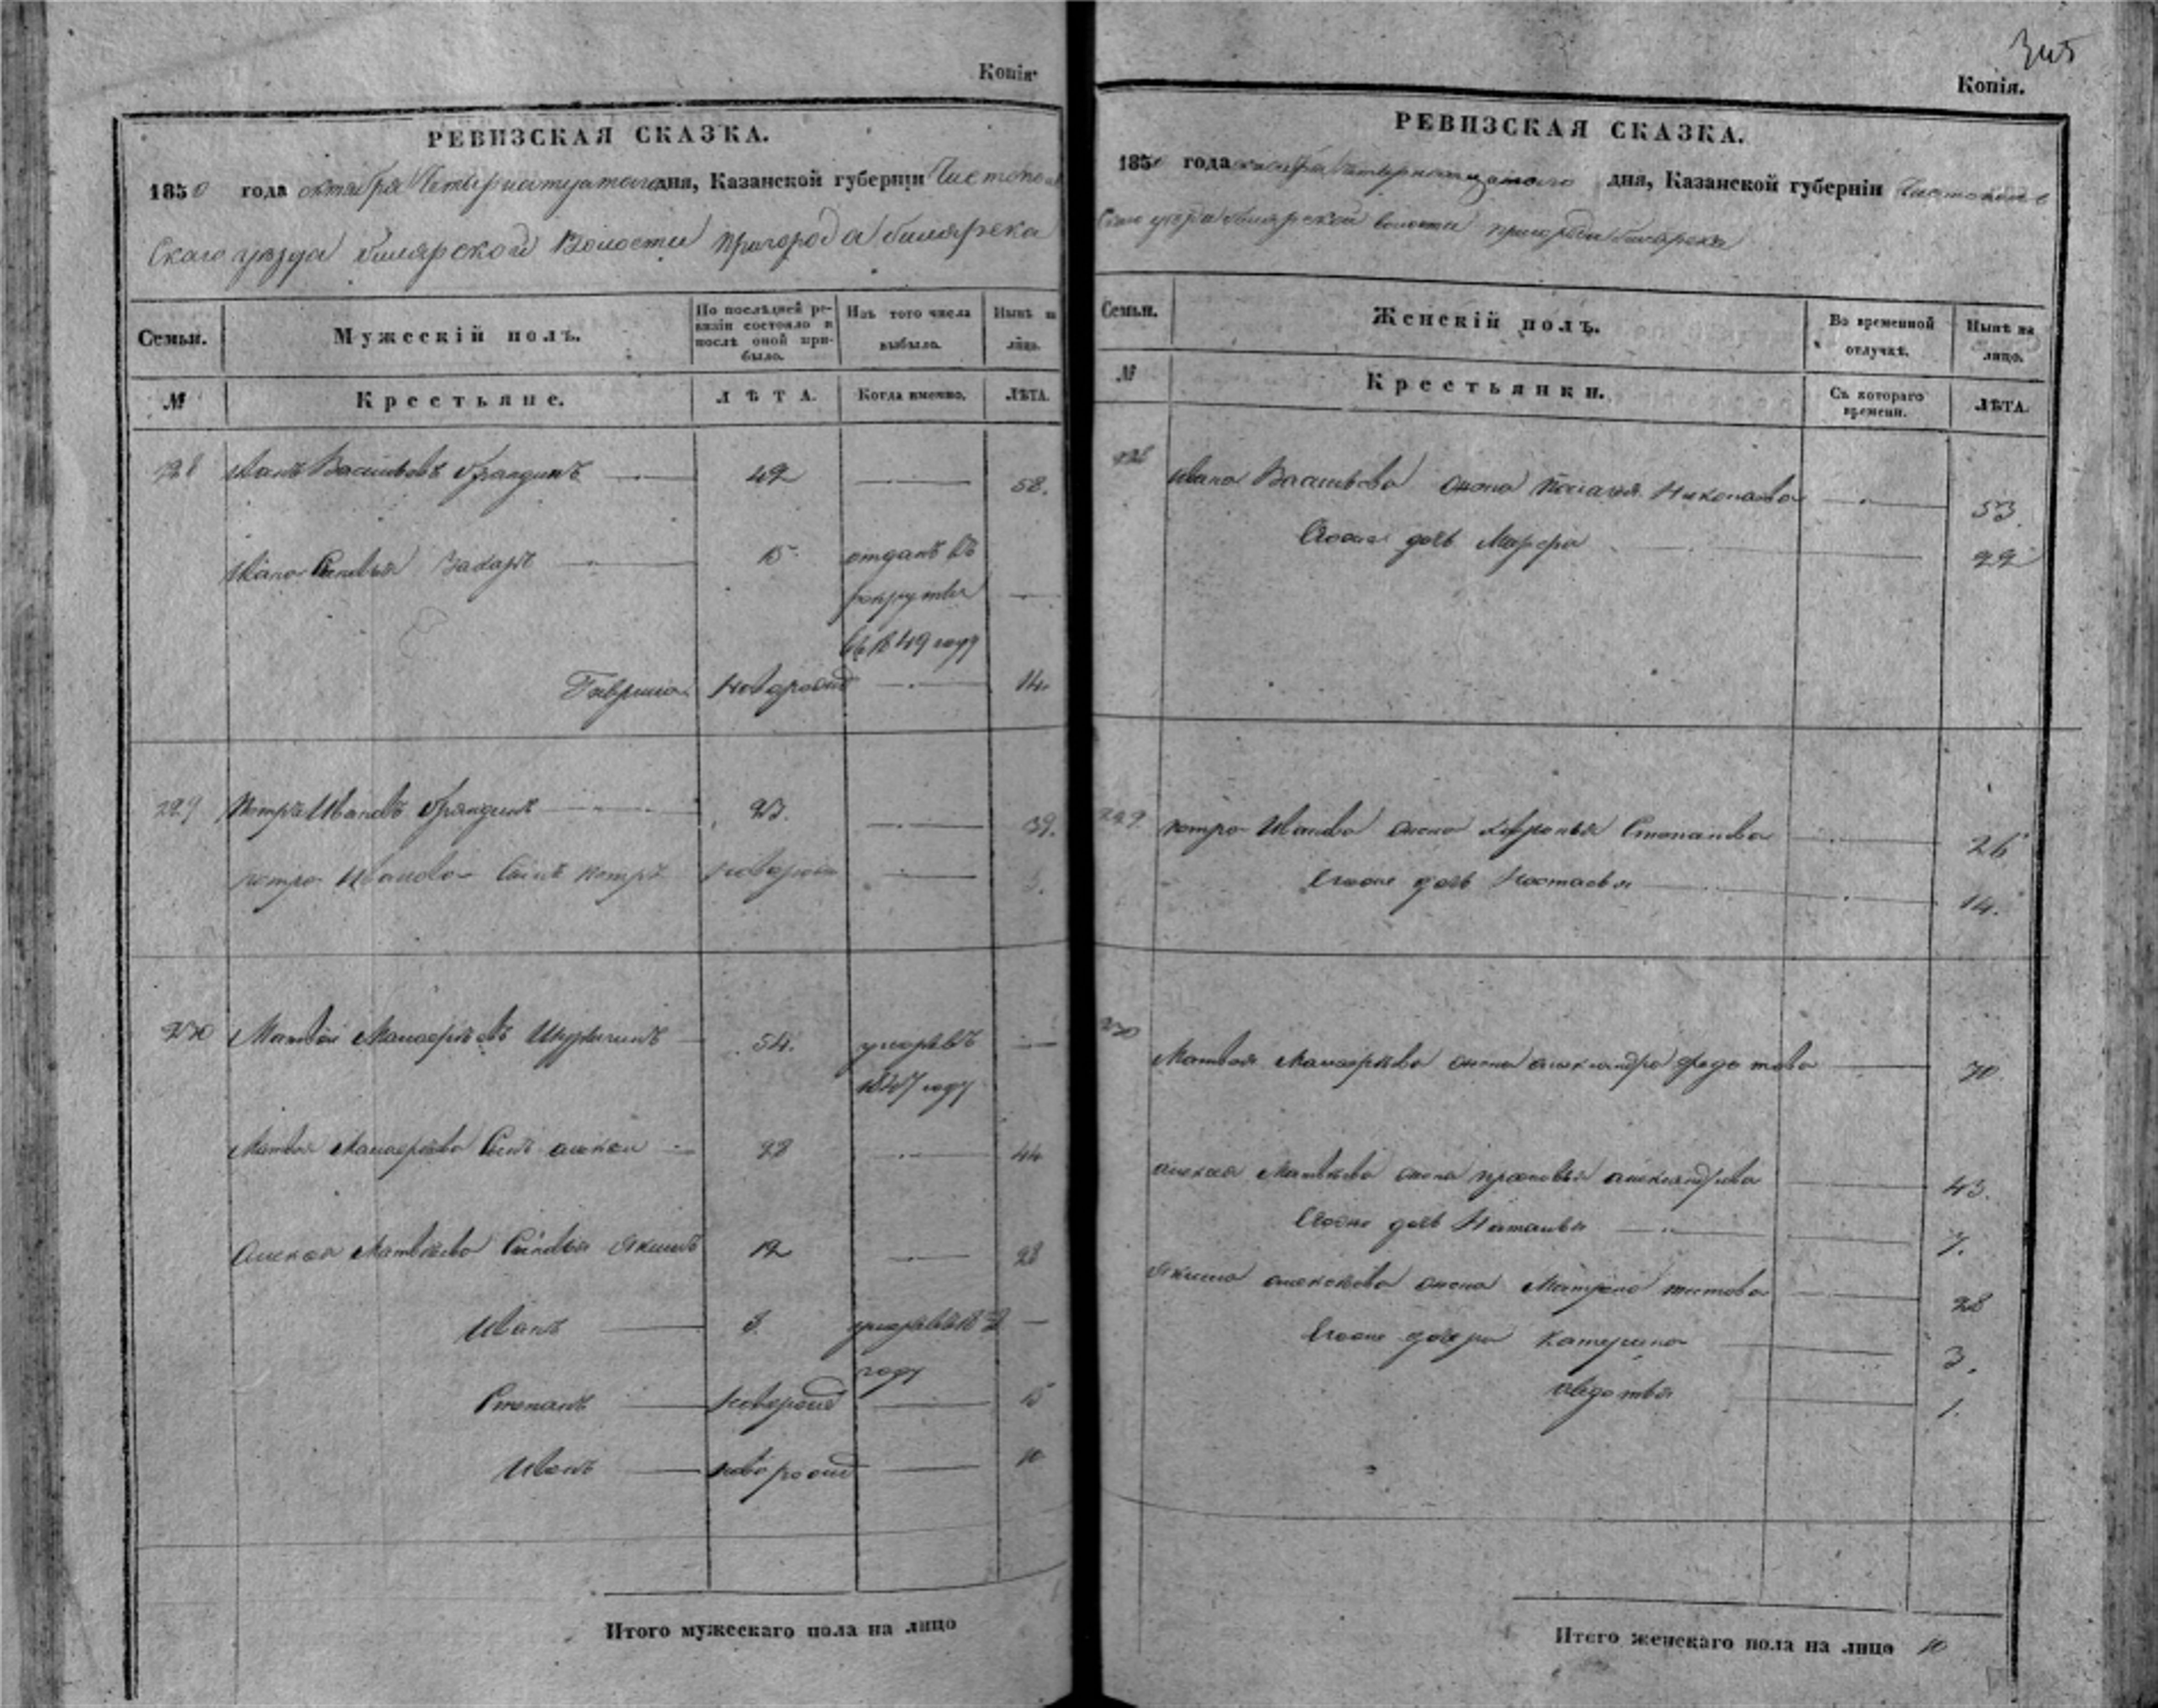 Копія
РЕВИЗСКАЯ СКАЗКА.
1850 года октября Четырнатцатаго дня, Казанской губерніи Чистополь
Скаго уезда билярской Волости пригорода билярска
Семьи. Мужескій полъ. По послѣдней ревизіи состояло и послѣ оной прибыло. Изъ того числа выбыло. Нынѣ на лицо.
№ Крестьяне. ЛѢТА. Когда именно. ЛѢТА.
228 Иванъ Васильевъ 42 58.
Ивана Сыновья Захаръ 15 отданъ въ
рекруты
въ 1849 году
Гаврила новорожд 14.
229 Петръ Ивановъ 23. 39.
петра Иванова Сынъ петръ новорож 3.
230 Матвей 54. умеръ въ
1847 году
Матвея Сынъ алексей 28 44
Алексея Матвеева Сыновья Якимъ 12 28
Иванъ 8. умеръ въ
году
Степанъ новорожд 15
Иванъ новорожд 10
Итого мужескаго пола на лицо
345
Копія.
РЕВИЗСКАЯ СКАЗКА.
1850 года октября Четырнатцатаго дня, Казанской губерніи Чистополь
Скаго уезда билярской волости пригорода билярска
Семьи. Женскій полъ. Во временной отлучкѣ. Нынѣ на лицо.
№ Крестьянки. Съ котораго времени. ЛѢТА.
228 Ивана Васильева жена Николаева 53
Егоже дочь Марфа 22
229 петра Иванова жена Степанова 26
Егоже дочь Настасья 14.
230 Матвея жена александра федотова 70.
алексея Матвеева жена прасковья александрова 43.
Егоже дочь Наталья 7.
Якима алексеева жена Матрена титова 28
Егоже дочери Катерина 3.
авдотья 1.
Итого женскаго пола на лицо 10